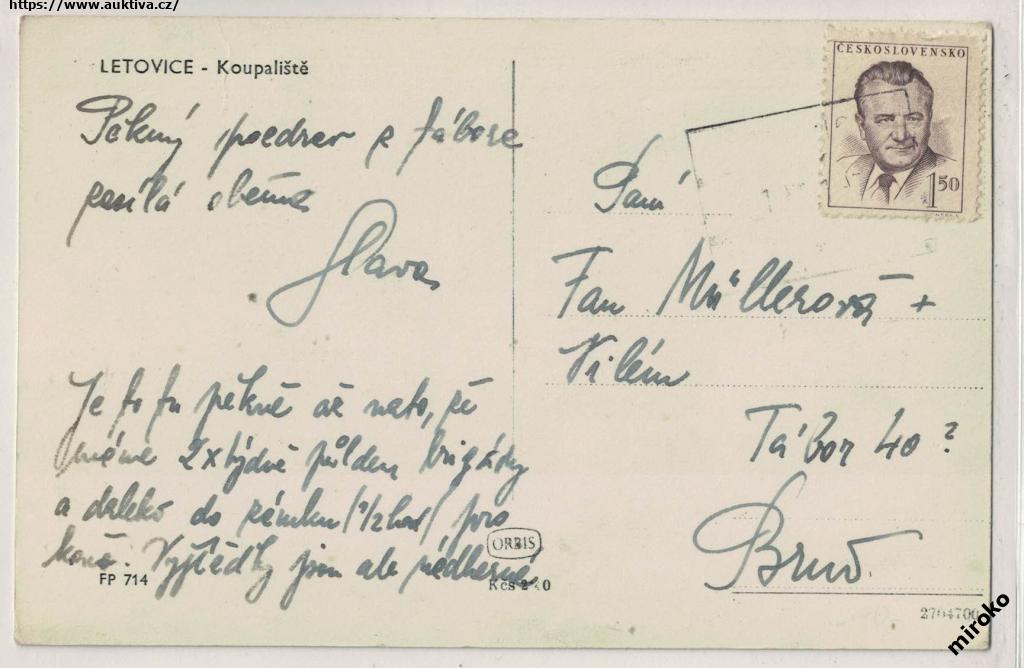 https://www.auktiva.cz/
LETOVICE - Koupaliště
ČESKOSLOVENSKO
1 50
Pěkný pozdrav z tábora
posílá oběma
Slava
Paní
Fan Müllerová +
Vilém
Tábor 40?
Brno
Je to tu pěkné až na to, že
máme 2x týdně půlden brigády
a daleko do zámku /½ hod/ pro
Výjížďky jsou ale nádherné.
ORBIS
FP 714
Kčs 2·40
2704700
miroko